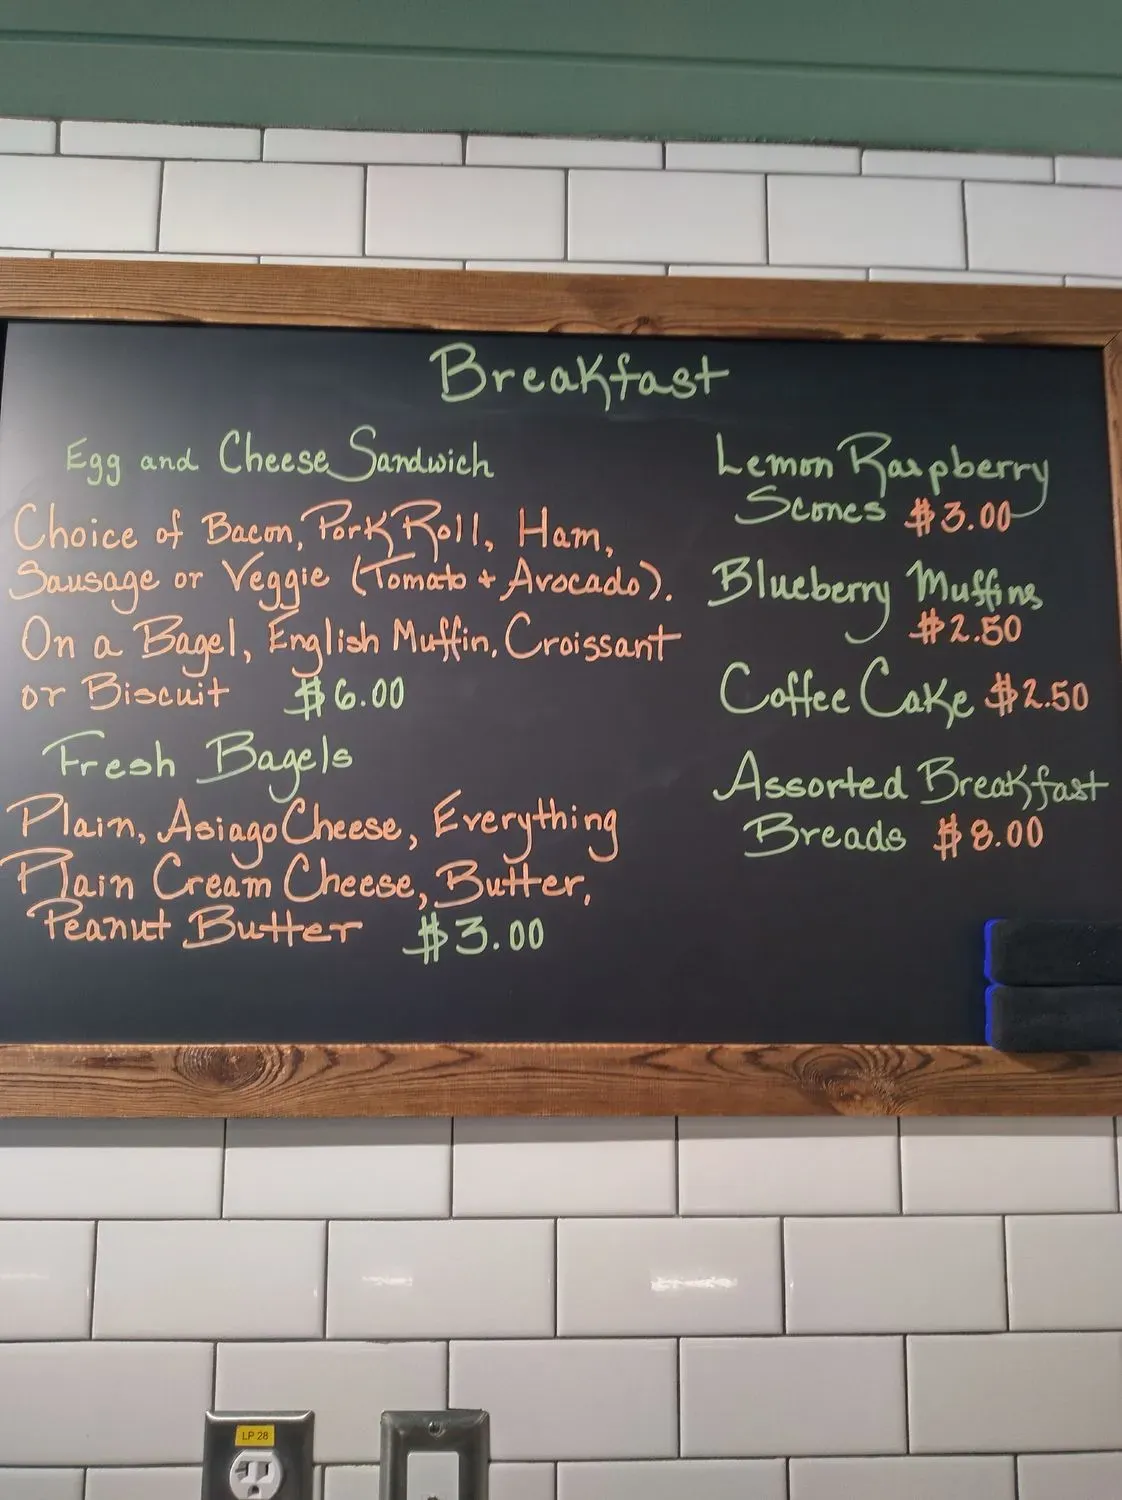 Breakfast
Egg and Cheese Sandwich
Choice of Bacon, Pork Roll, Ham,
Sausage or Veggie (Tomato + Avocado).
On a Bagel, English Muffin, Croissant
or Biscuit $6.00
Fresh Bagels
Plain, Asiago Cheese, Everything
Plain Cream Cheese, Butter,
Peanut Butter $3.00
Lemon Raspberry
Scones $3.00
Blueberry Muffins
$2.50
Coffee Cake $2.50
Assorted Breakfast
Breads $8.00
LP 28